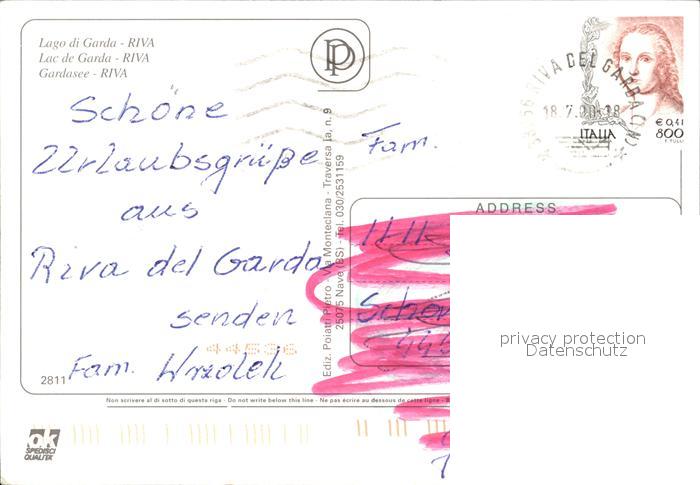 Lago di Garda - RIVA
Lac de Garda - RIVA
Gardasee - RIVA
PP
Schöne
Urlaubsgrüße
aus
Riva del Garda
senden
Fam. Wrzolek
44536
2811
Ediz. Poiatti Pietro - Via Monteclana - Traversa Ia, n. 9
25075 Nave (BS) - Tel. 030/2531159
RIVA DEL GARDA (TN)
18.7.00-18
€ 0,41
ITALIA 800
F. TULLI
Fam.
ADDRESS
Non scrivere al di sotto di questa riga - Do not write below this line - Ne pas écrire au dessous de cette ligne -
ok
SPEDISCI
QUALITEK
privacy protection
Datenschutz